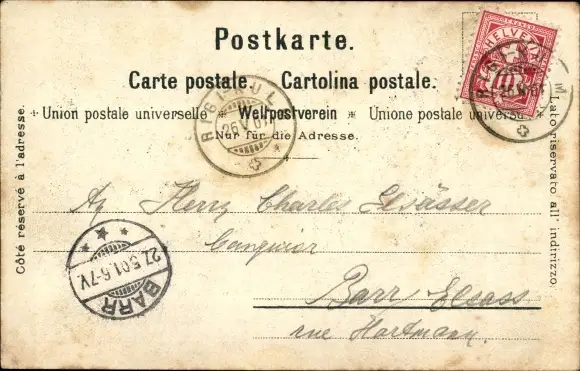 Postkarte.
Carte postale. Cartolina postale.
Union postale universelle Weltpostverein Unione postale universe
Nur für die Adresse.
Côté réservé à l'adresse.
Lato riservato all' indirizzo.
HELVETIA
10
RIGI KUL
26.V.01
27.5.01.6-7V.
BARR
Herrn Charles
Barr Elsass
rue Hartmann.